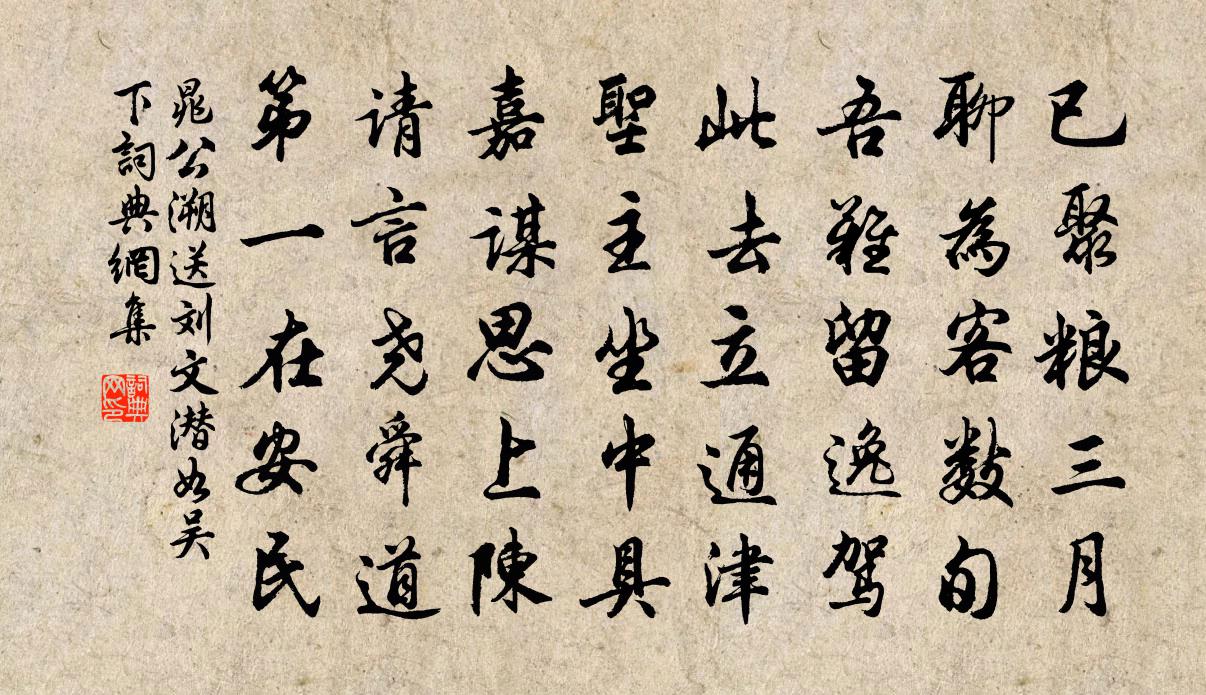 已聚粮三月
聊為客数旬
吾難留逸驾
此去立通津
聖主坐中具
嘉謀思上陳
请言尧舜道
第一在安民
晁公溯送刘文潜如吴
下詞典網集
詞典网印